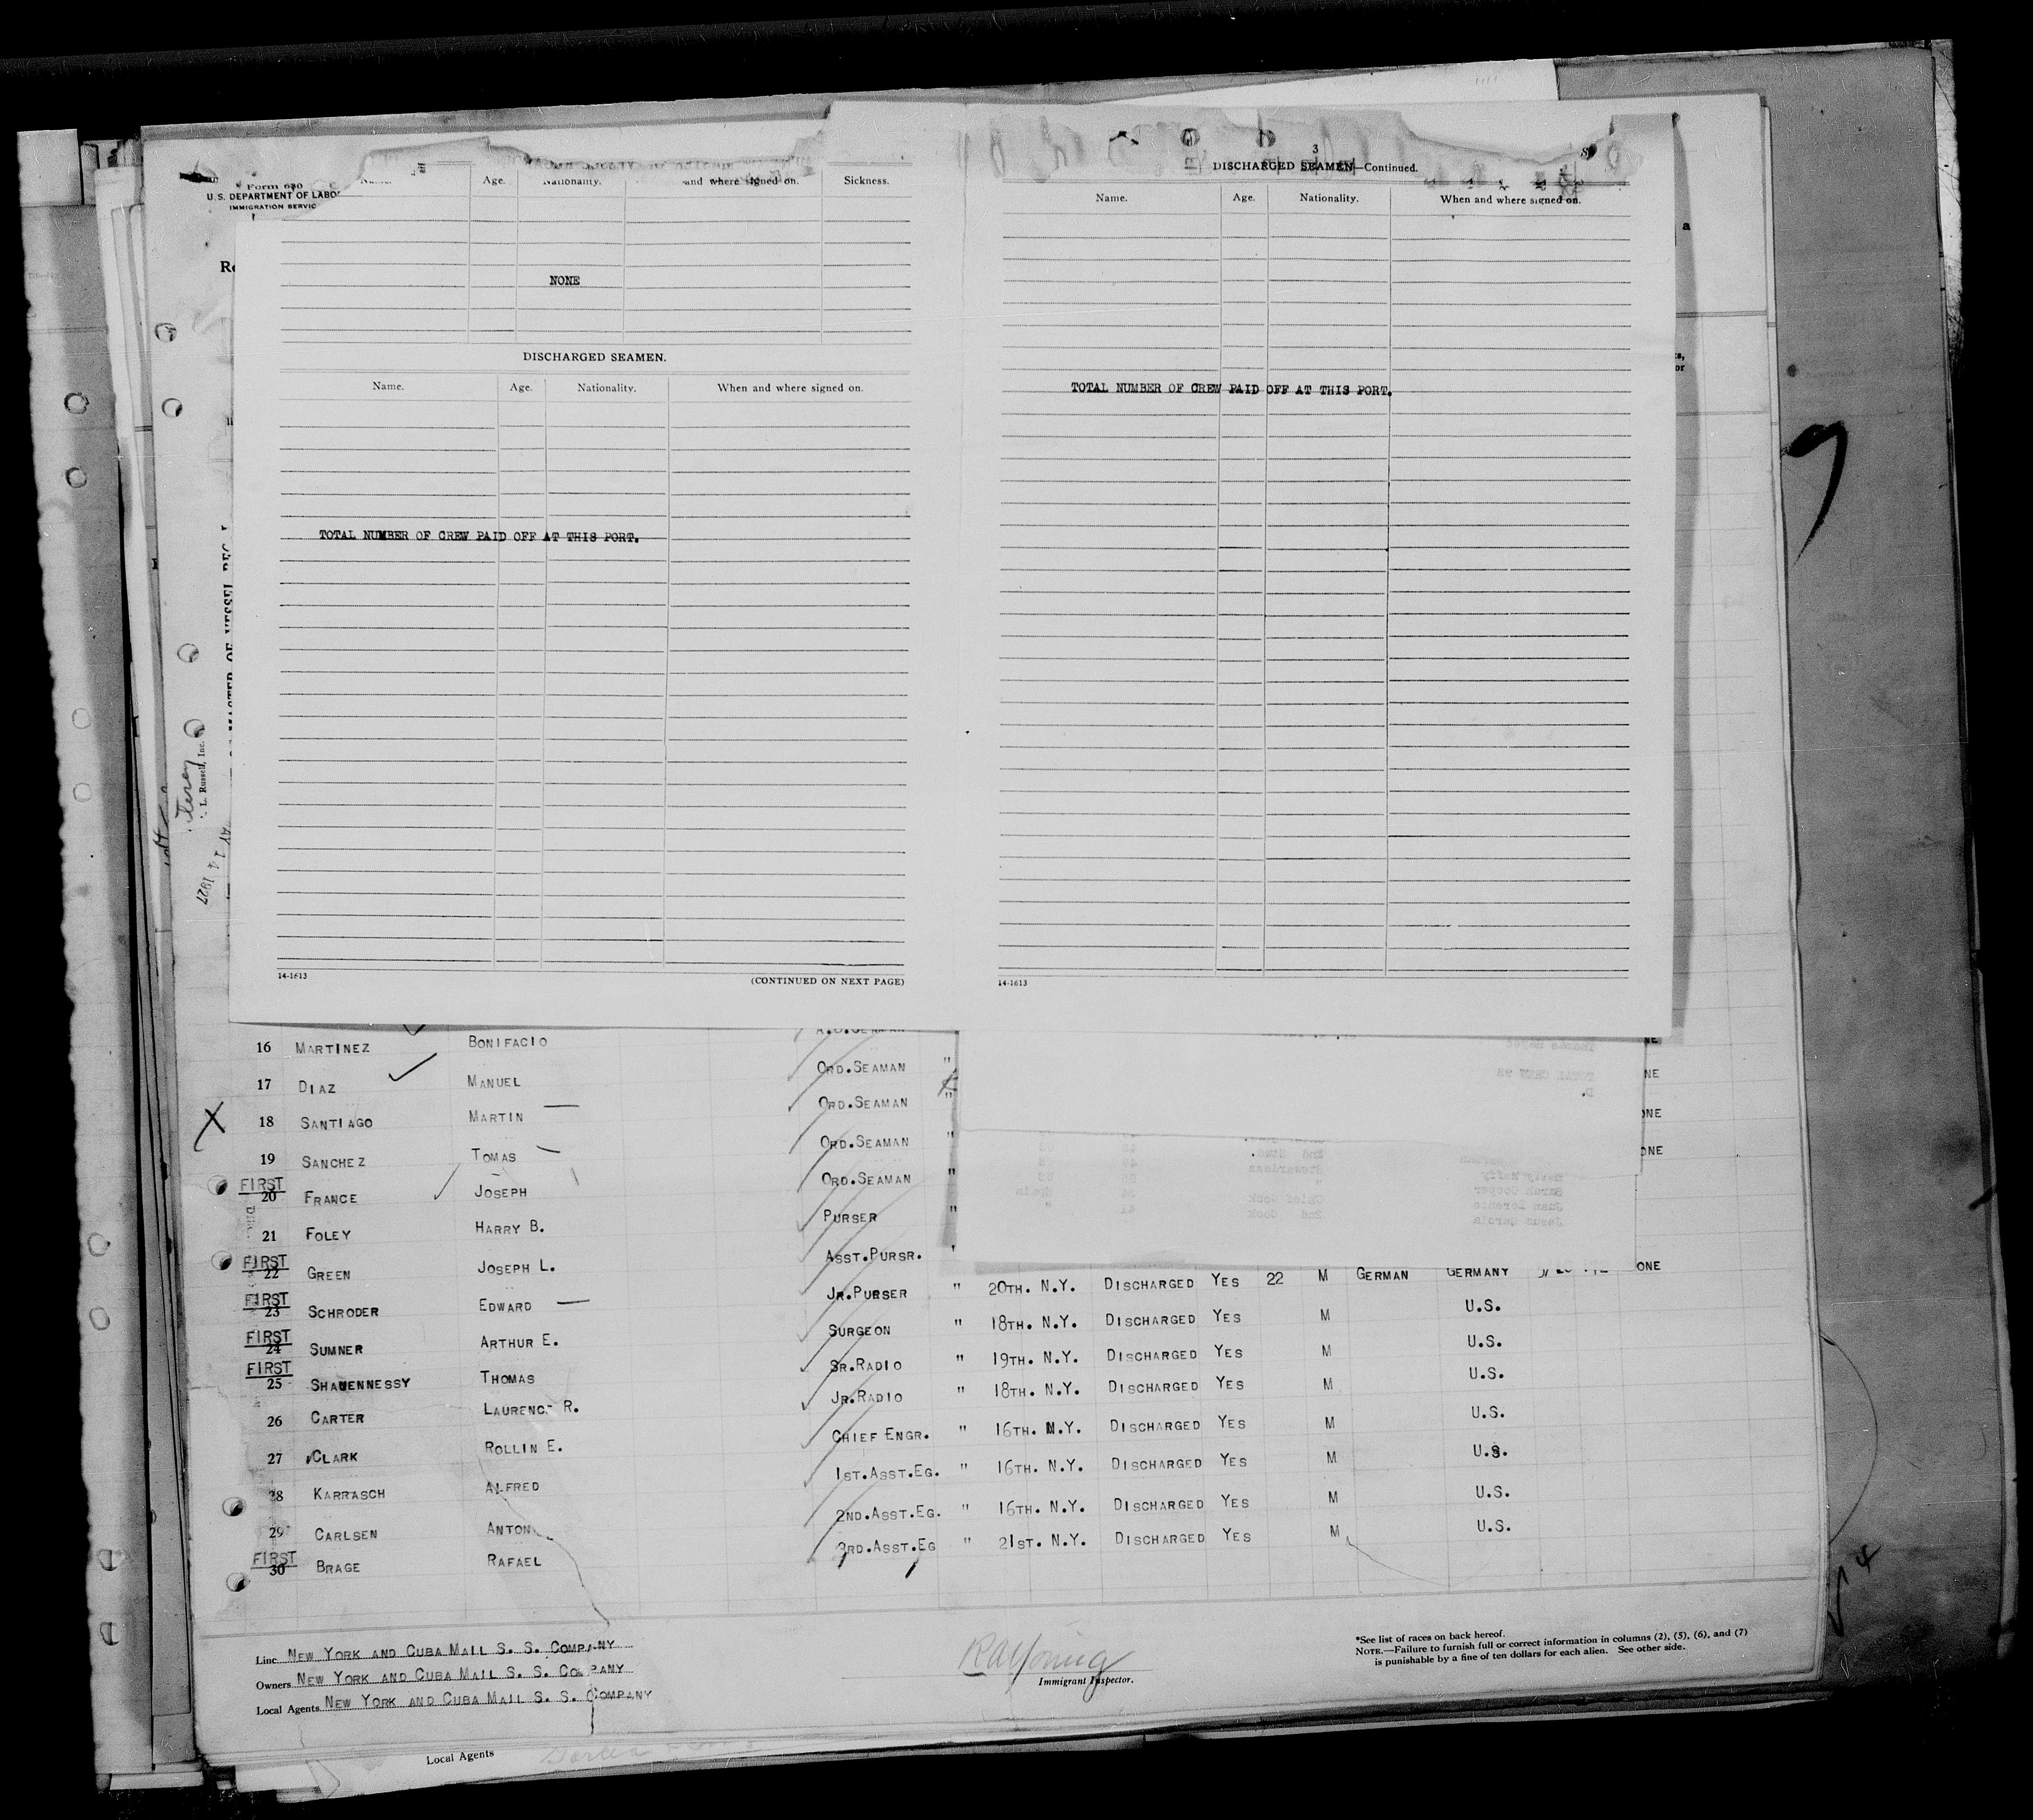 Form 680
U.S. DEPARTMENT OF LABO
IMMIGRATION SERVIC
Age. Nationality. and where signed on. Sickness.
NONE
DISCHARGED SEAMEN.
Name. Age. Nationality. When and where signed on.
TOTAL NUMBER OF CREW PAID OFF AT THIS PORT.
14-1613 (CONTINUED ON NEXT PAGE)
3
DISCHARGED SEAMEN—Continued.
Name. Age. Nationality. When and where signed on.
TOTAL NUMBER OF CREW PAID OFF AT THIS PORT.
14-1613
L. Russell, Inc.
16 MARTINEZ BONIFACIO
17 DIAZ MANUEL ORD.SEAMAN " NE
18 SANTIAGO MARTIN ORD.SEAMAN " ONE
19 SANCHEZ TOMAS ORD.SEAMAN " ONE
FIRST
20 FRANCE JOSEPH ORD.SEAMAN "
21 FOLEY HARRY B. PURSER "
FIRST
22 GREEN JOSEPH L. ASST.PURSR. "
FIRST
23 SCHRODER EDWARD JR.PURSER " 20TH. N.Y. DISCHARGED YES 22 M GERMAN GERMANY ONE
FIRST
24 SUMNER ARTHUR E. SURGEON " 18TH. N.Y. DISCHARGED YES M U.S.
FIRST
25 SHAUENNESSY THOMAS SR.RADIO " 19TH. N.Y. DISCHARGED YES M U.S.
26 CARTER LAURENC- R. JR.RADIO " 18TH. N.Y. DISCHARGED YES M U.S.
27 CLARK ROLLIN E. CHIEF ENGR. " 16TH. N.Y. DISCHARGED YES M U.S.
28 KARRASCH ALFRED 1ST.ASST.EG. " 16TH. N.Y. DISCHARGED YES M U.S.
29 CARLSEN ANTON 2ND.ASST.EG. " 16TH. N.Y. DISCHARGED YES M U.S.
FIRST
30 BRAGE RAFAEL 3RD.ASST.EG " 21ST. N.Y. DISCHARGED YES M U.S.
Line NEW YORK AND CUBA MAIL S. S. COMPANY
Owners NEW YORK AND CUBA MAIL S. S. COMPANY
Local Agents NEW YORK AND CUBA MAIL S. S. COMPANY
RA Young
Immigrant Inspector.
*See list of races on back hereof.
NOTE.—Failure to furnish full or correct information in columns (2), (5), (6), and (7)
is punishable by a fine of ten dollars for each alien. See other side.
Local Agents